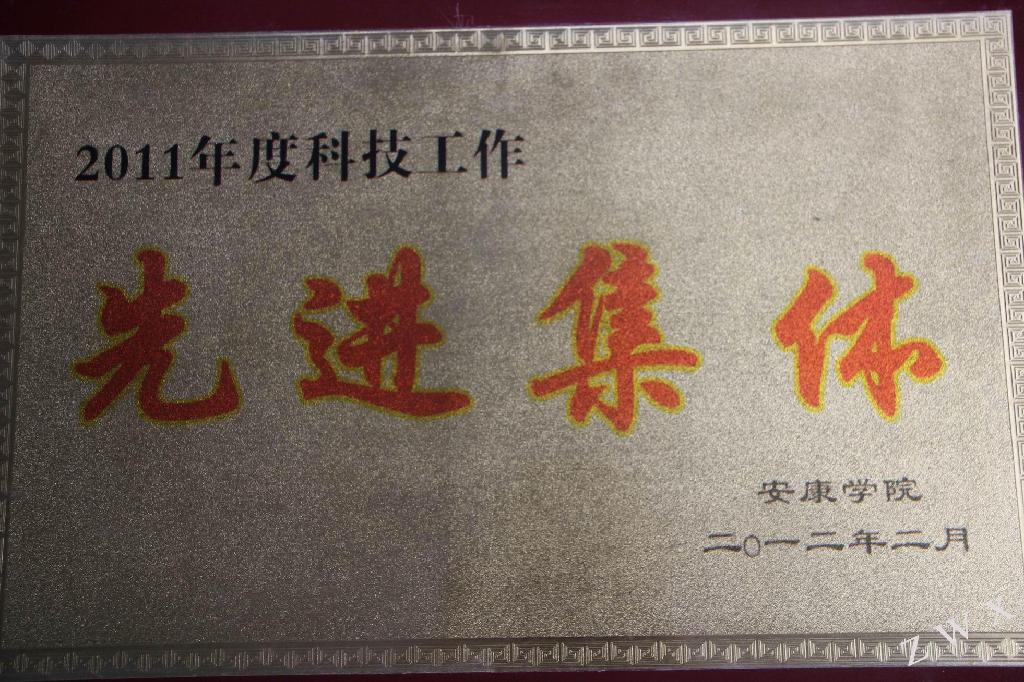 2011年度科技工作
先进集体
安康学院
二〇一二年二月
ZWX